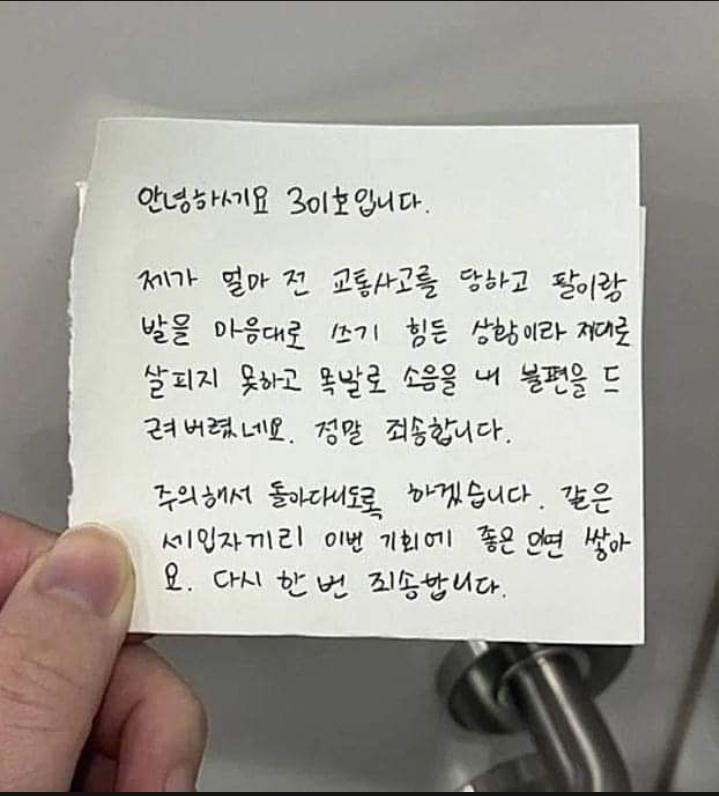 안녕하세요 301호입니다.
제가 얼마 전 교통사고를 당하고 팔이랑
발을 마음대로 쓰기 힘든 상황이라 제대로
살피지 못하고 목발로 소음을 내 불편을 드
려버렸네요. 정말 죄송합니다.
주의해서 돌아다니도록 하겠습니다. 같은
세입자끼리 이번 기회에 좋은 인연 쌓아
요. 다시 한 번 죄송합니다.